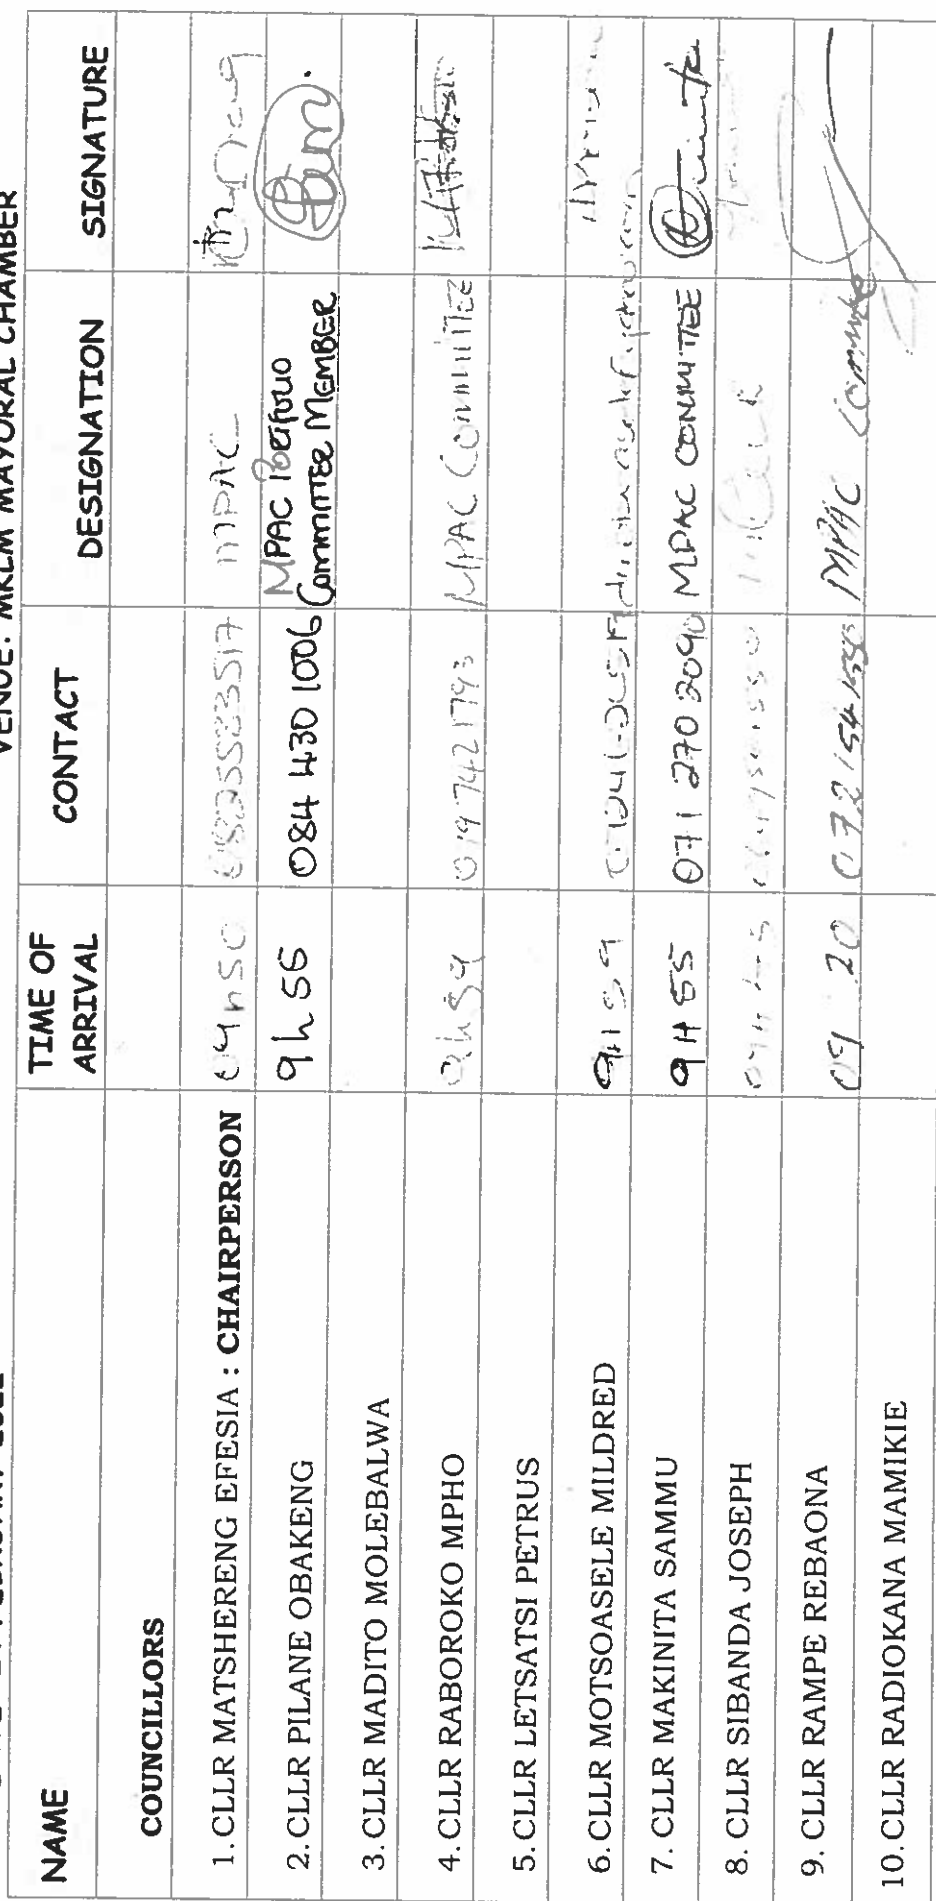 VENUE: MKLM MAYORAL CHAMBER
NAME TIME OF ARRIVAL CONTACT DESIGNATION SIGNATURE
COUNCILLORS
1. CLLR MATSHERENG EFESIA : CHAIRPERSON 09h50 0825583517 MPAC
2. CLLR PILANE OBAKENG 9h55 084 430 1006 MPAC Portfolio Committee MEMBER
3. CLLR MADITO MOLEBALWA
4. CLLR RABOROKO MPHO 9h59 0797421793 MPAC COMMITTEE
5. CLLR LETSATSI PETRUS
6. CLLR MOTSOASELE MILDRED 9H59
7. CLLR MAKINITA SAMMU 9H55 071 270 2090 MPAC COMMITTEE
8. CLLR SIBANDA JOSEPH
9. CLLR RAMPE REBAONA 09 20 MPAC Committe
10. CLLR RADIOKANA MAMIKIE